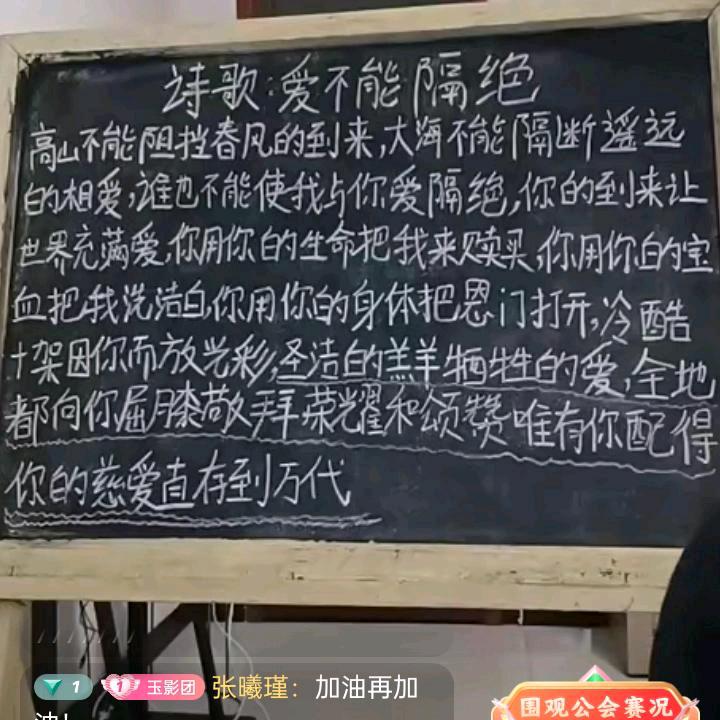 诗歌:爱不能隔绝
高山不能阻挡春风的到来,大海不能隔断遥远
的相爱,谁也不能使我与你爱隔绝,你的到来让
世界充满爱,你用你的生命把我来赎买,你用你的宝
血把我洗洁白,你用你的身体把恩门打开,冷酷
十架因你而放光彩,圣洁的羔羊牺牲的爱,全地
都向你屈膝敬拜,荣耀和颂赞唯有你配得
你的慈爱直存到万代
1 1 玉影团 张曦瑾：加油再加
油！
围观公会赛况